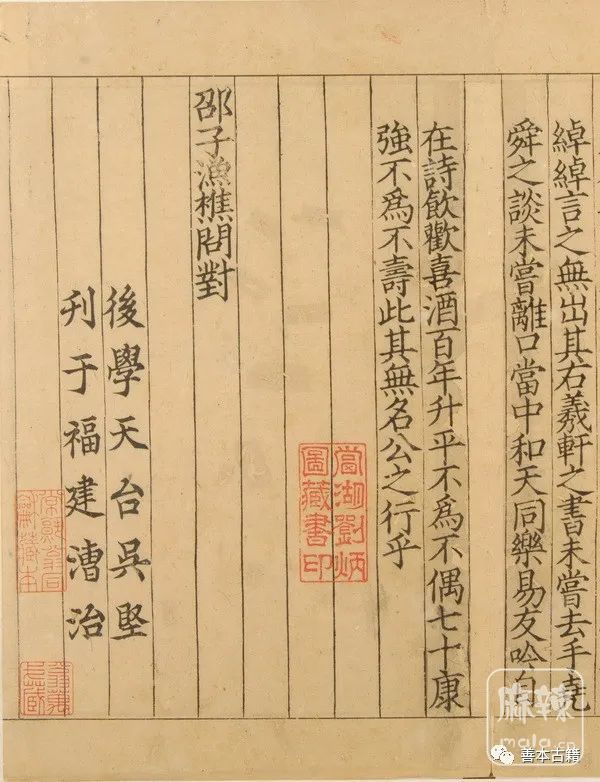 綽綽言之無出其右羲軒之書未嘗去手堯
舜之談未嘗離口當中和天同樂易友吟自
在詩飲歡喜酒百年升平不爲不偶七十康
強不爲不壽此其無名公之行乎
當湖劉炳
圖藏書印
邵子漁樵問對
後學天台吳堅
刋于福建漕治
麻辣
mala.cn
善本古籍